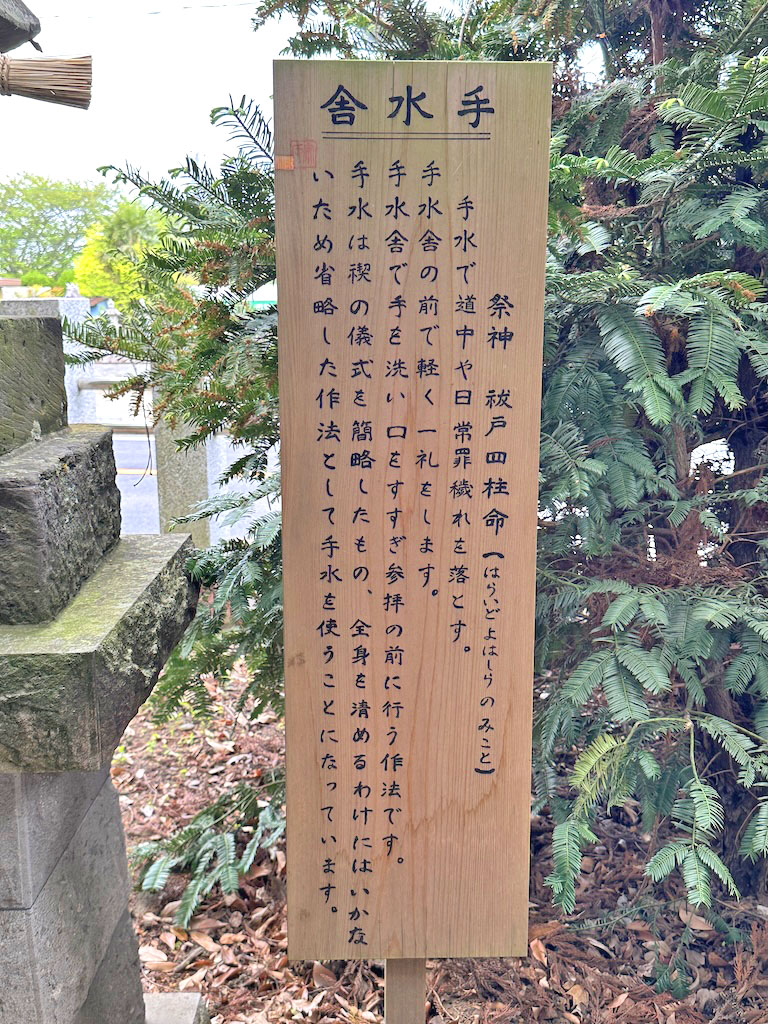 手水舎
祭神　祓戸四柱命(はらいどよはしらのみこと)
手水で道中や日常罪穢れを落とす。
手水舎の前で軽く一礼をします。
手水舎で手を洗い口をすすぎ参拝の前に行う作法です。
手水は禊の儀式を簡略したもの、全身を清めるわけにはいかな
いため省略した作法として手水を使うことになっています。